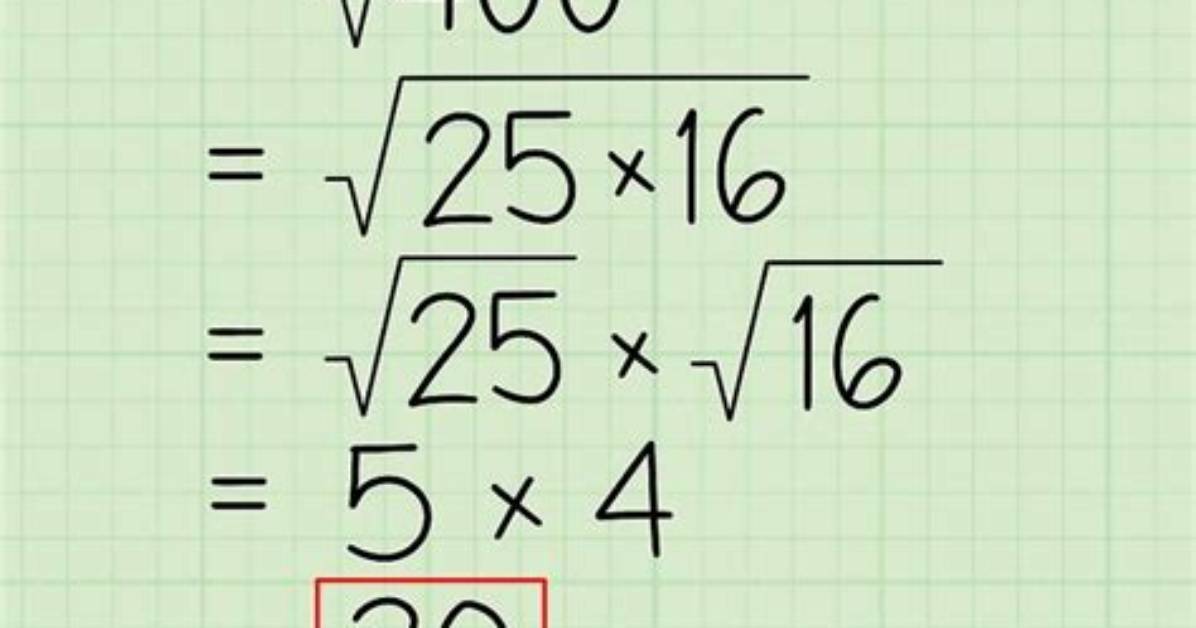 √400
= √25×16
= √25 × √16
= 5 × 4
20